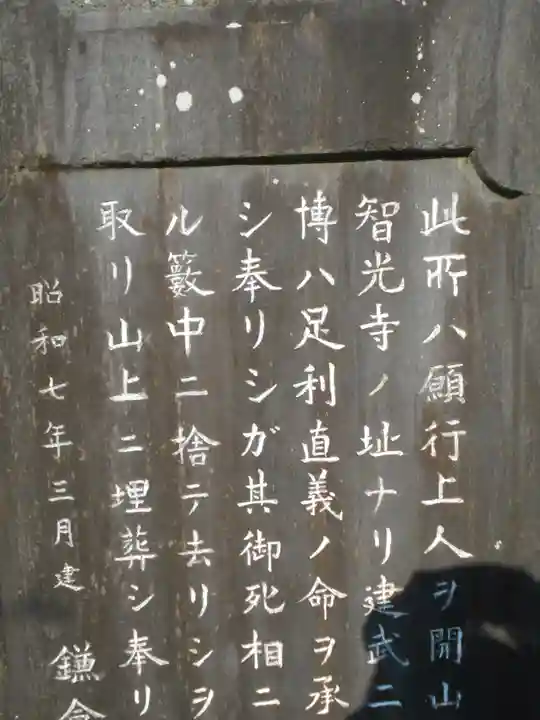 此所ハ願行上人ヲ開山
智光寺ノ址ナリ建武二
博ハ足利直義ノ命ヲ承
シ奉リシガ其御死相ニ
ル籔中ニ捨テ去リシヲ
取リ山上ニ埋葬シ奉リ
昭和七年三月建 鎌倉